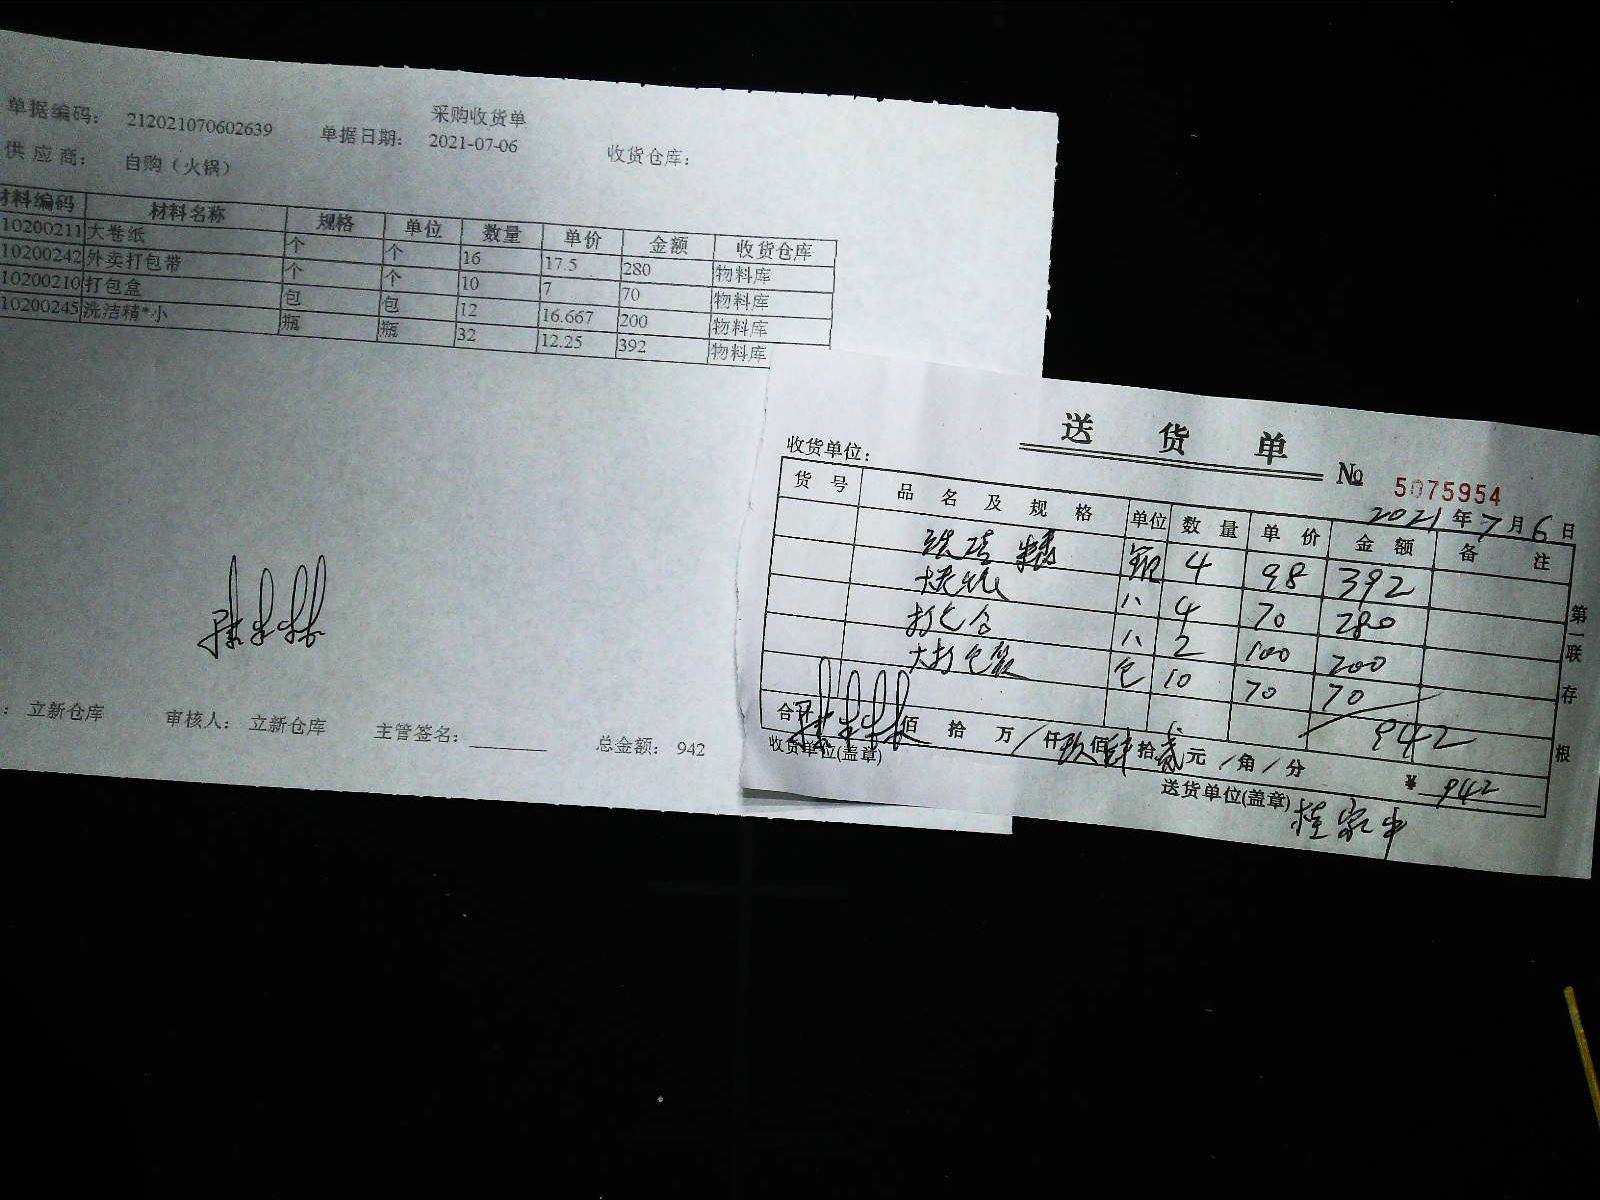 采购收货单
单据编码： 212021070602639 单据日期： 2021-07-06 收货仓库：
供应商： 自购（火锅）
材料编码 材料名称 规格 单位 数量 单价 金额 收货仓库
10200211 大卷纸 个 个 16 17.5 280 物料库
10200242 外卖打包带 个 个 10 7 70 物料库
10200210 打包盒 包 包 12 16.667 200 物料库
10200245 洗洁精*小 瓶 瓶 32 12.25 392 物料库
： 立新仓库 审核人： 立新仓库 主管签名： 总金额： 942
送货单
收货单位： № 5075954
2021年7月6日
货号 品名及规格 单位 数量 单价 金额 备注
洗洁精 箱 4 98 392
大卷纸 〃 4 70 280
打包合 〃 2 100 200
大打包袋 包 10 70 70
942
合计 佰 拾 万 / 仟 玖 佰 肆 拾 贰 元 / 角 / 分 ¥ 942
收货单位(盖章) 送货单位(盖章) 桂家中
第一联 存根